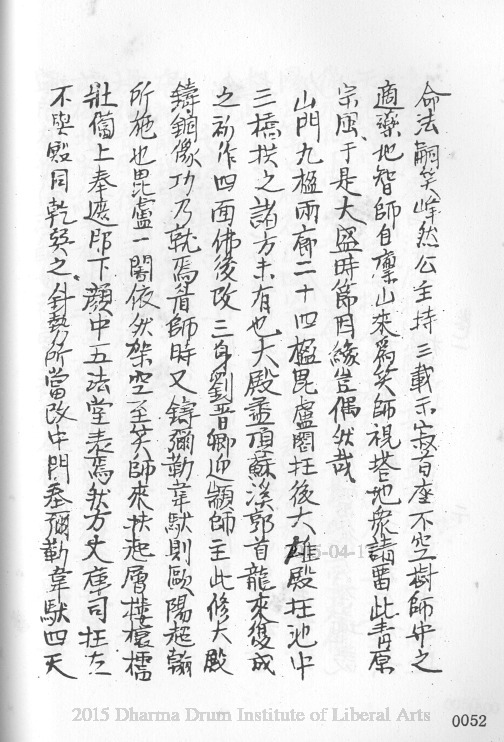 命法嗣笑峰然公主持三載示寂首座不空樹師安之
適藥地智師自廩山來為笑師視塔地衆請畱此青原
宗風于是大盛時節因緣豈偶然哉
山門九楹兩廊二十四楹毘盧閣在後大雄殿在池中
三橋拱之諸方未有也大殿盡頂蘇溪郭首龍來復成
之初作四面佛後改三身劉晉卿迎顓師主此修大殿
鑄銅像功乃就焉眉師時又鑄彌勒韋馱則歐陽超翰
所施也毘盧一閣依然架空至笑師來扶起層樓欀櫺
壯僃上奉遮那下顏中五法堂表焉然方丈庫司在左
不與殿同乾巽之針勢所當改中門奉彌勒韋馱四天
2015 Dharma Drum Institute of Liberal Arts
0052